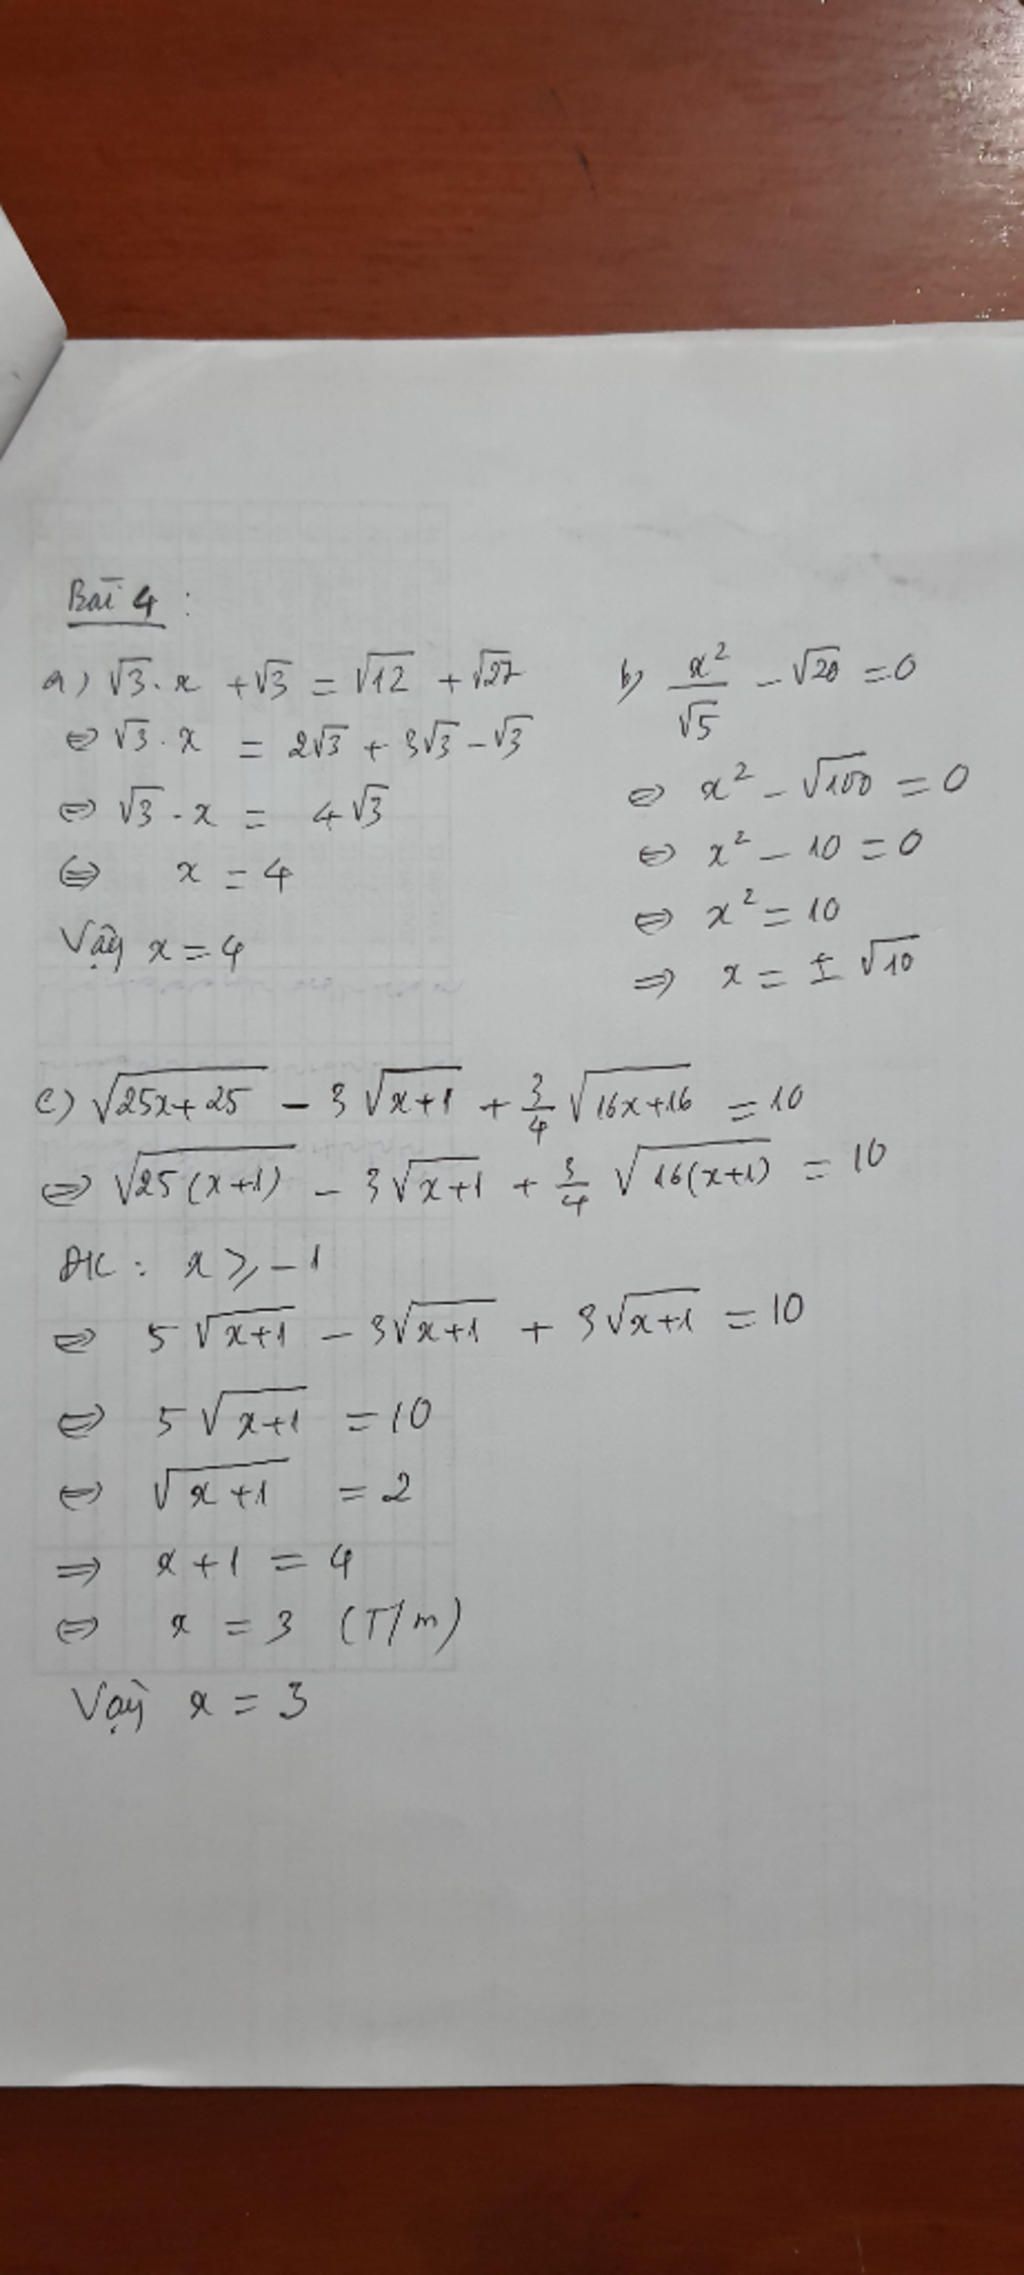 Bài 4 :
a) √3 . x + √3 = √12 + √27
⇔ √3 . x = 2√3 + 3√3 - √3
⇔ √3 . x = 4√3
⇔ x = 4
Vậy x = 4
b) x²/√5 - √20 = 0
⇔ x² - √100 = 0
⇔ x² - 10 = 0
⇔ x² = 10
⇒ x = ± √10
c) √(25x+25) - 3√(x+1) + 3/4 √(16x+16) = 10
⇔ √(25(x+1)) - 3√(x+1) + 3/4 √(16(x+1)) = 10
ĐK : x ≥ -1
⇔ 5√(x+1) - 3√(x+1) + 3√(x+1) = 10
⇔ 5√(x+1) = 10
⇔ √(x+1) = 2
⇒ x + 1 = 4
⇔ x = 3 (T/m)
Vậy x = 3